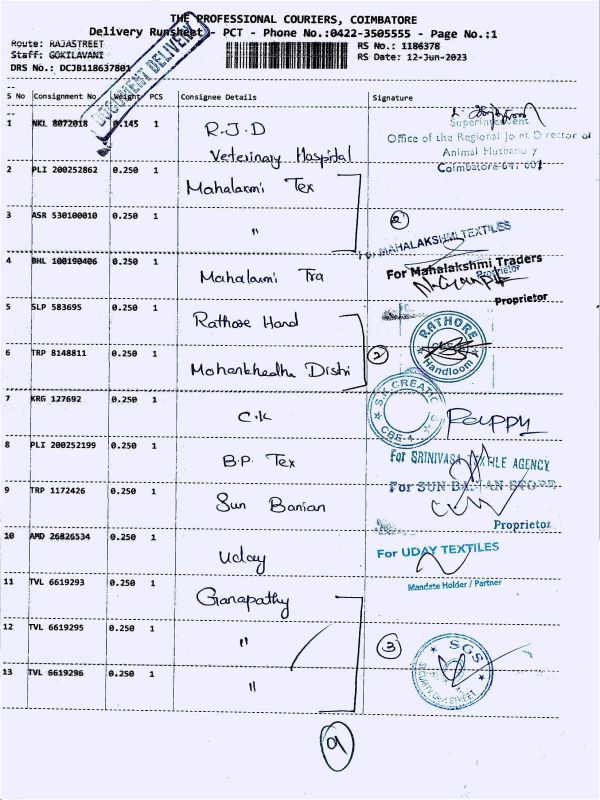 THE PROFESSIONAL COURIERS, COIMBATORE
Delivery Runsheet - PCT - Phone No.:0422-3505555 - Page No.:1
Route: RAJASTREET
RS No.: 1186378
Staff: GOKILAVANI
RS Date: 12-Jun-2023
DRS No.: DCJB118637801
DOCUMENT DELIVERY
S No Consignment No Weight PCS Consignee Details Signature
1 NKL 8072018 0.145 1 R.J.D
Veterinary Hospital
Superintendent
Office of the Regional Joint Director of
Animal Husbandry
Coimbatore-641 001
2 PLI 200252862 0.250 1 Mahalaxmi Tex
3 ASR 530100010 0.250 1 "
2
For MAHALAKSHMI TEXTILES
Proprietor
4 BHL 100190406 0.250 1 Mahalaxmi Tra
For Mahalakshmi Traders
Proprietor
5 SLP 583695 0.250 1 Rathore Hand
RATHORE
Handloom
6 TRP 8148811 0.250 1 Mohankhedha Dishi
2
7 KRG 127692 0.250 1 C.K
S.K CREATIONS
CBE-1
Pappy
8 PLI 200252199 0.250 1 B.P. Tex
For SRINIVASA TEXTILE AGENCY
9 TRP 1172426 0.250 1 Sun Banian
For SUN BANIAN STORE
Proprietor
10 AMD 26826534 0.250 1 Uday
For UDAY TEXTILES
Mandate Holder / Partner
11 TVL 6619293 0.250 1 Ganapathy
12 TVL 6619295 0.250 1 "
3
13 TVL 6619296 0.250 1 "
SGS
STREET
9